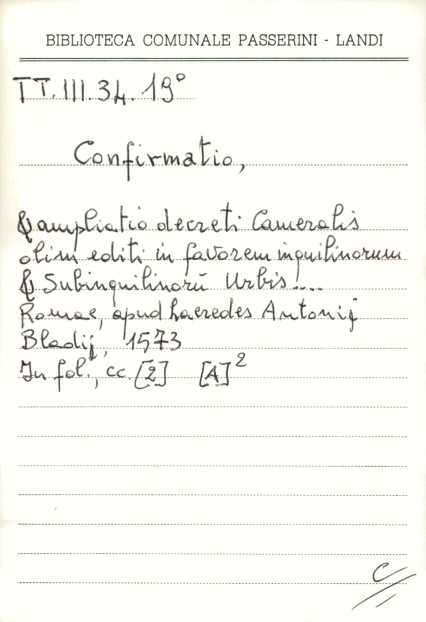 BIBLIOTECA COMUNALE PASSERINI - LANDI
TT.III.34.19°
Confirmatio,
& ampliatio decreti Cameralis
olim editi in favorem inquilinorum
& Subinquilinorũ Urbis....
Romae, apud haeredes Antonij
Bladij, 1573
In fol., cc. [2] [A]²
C